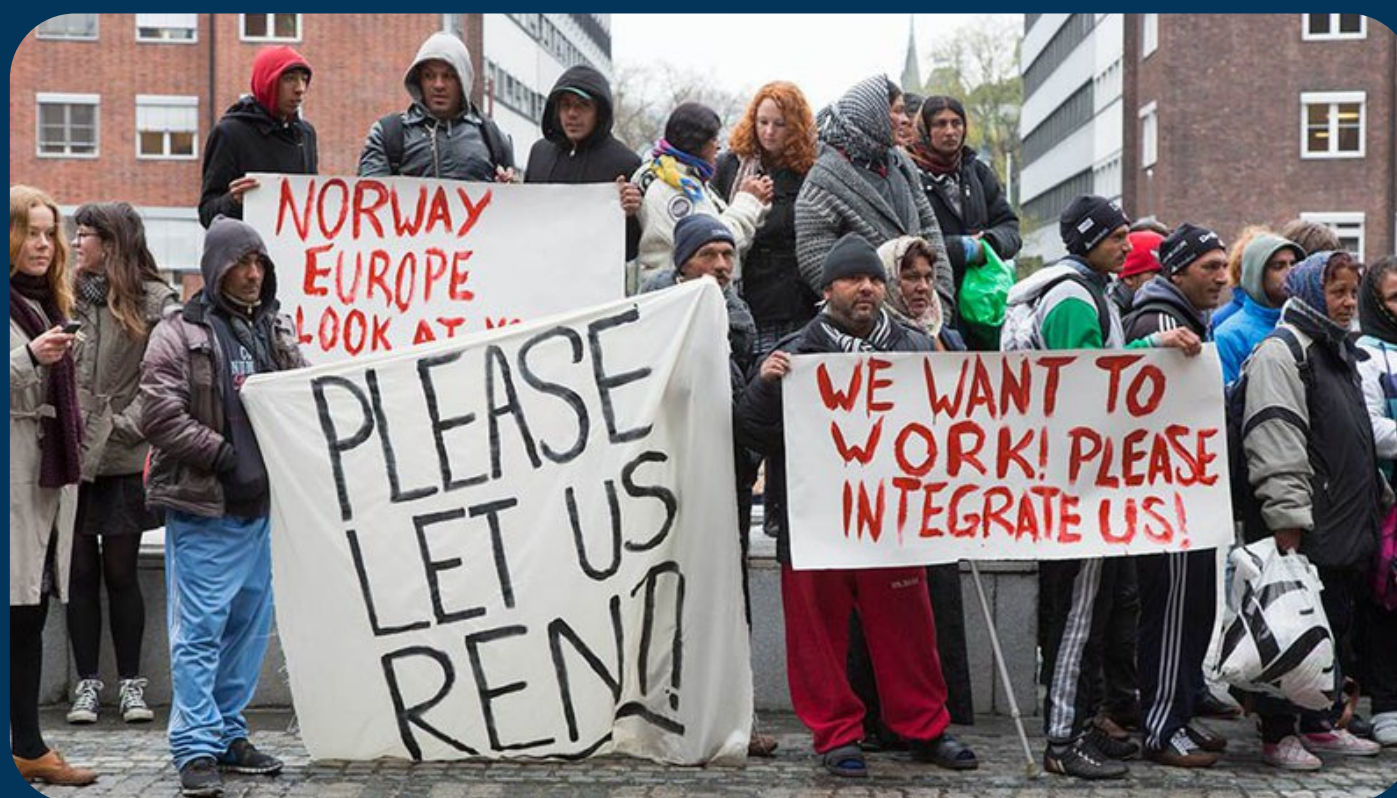 NORWAY
EUROPE
LOOK AT
PLEASE
LET US
RENT!
WE WANT TO
WORK! PLEASE
INTEGRATE US!